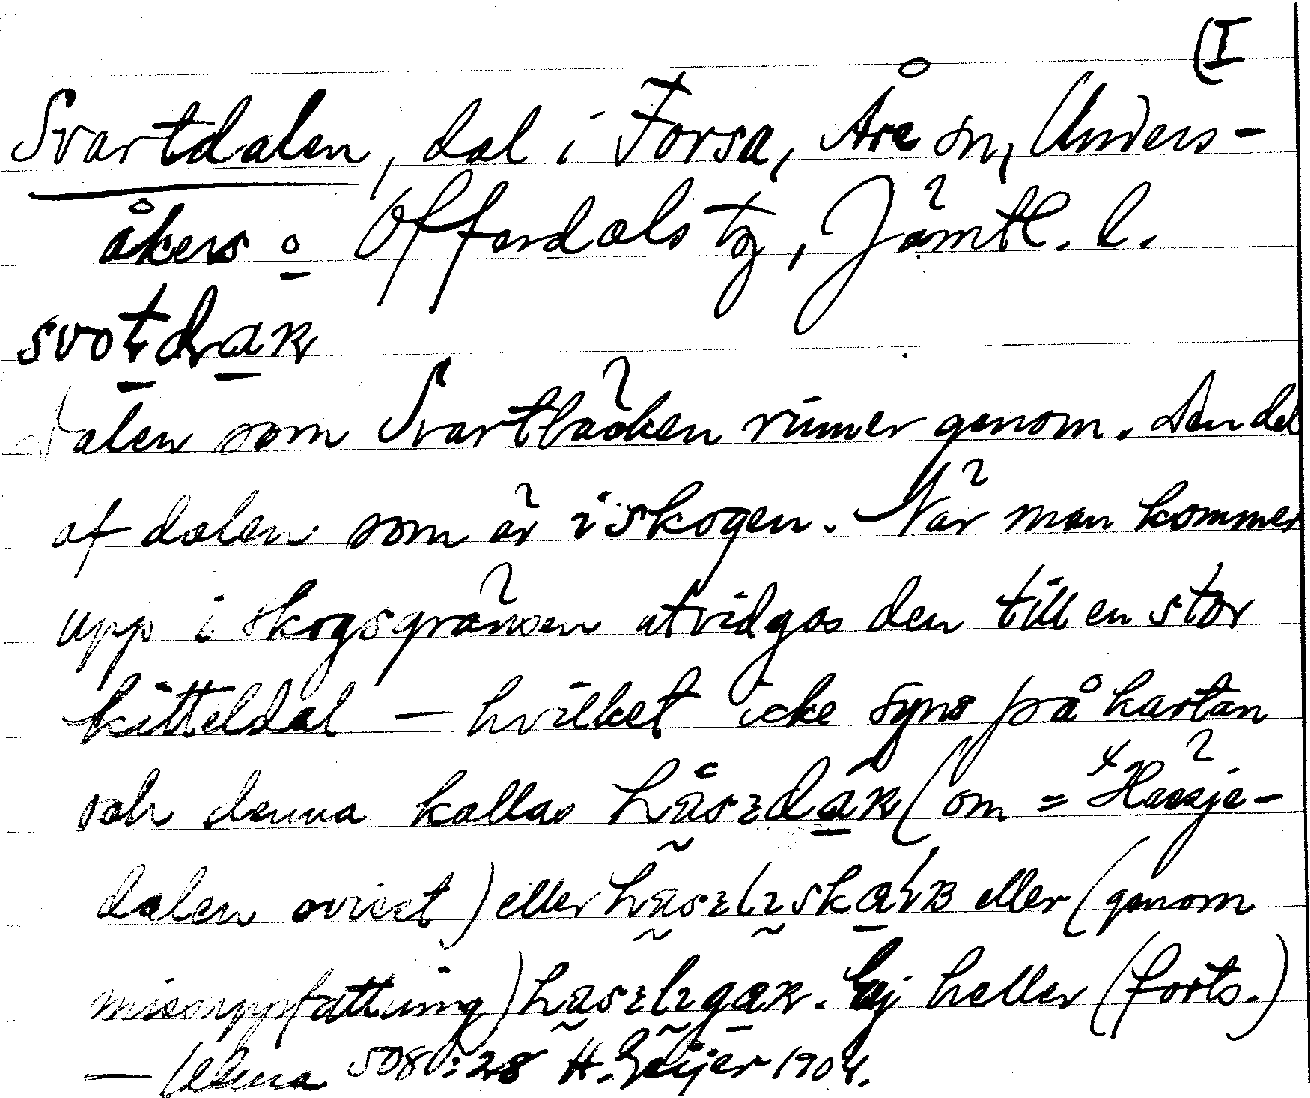 (I
Svartdalen, dal i Forsa, Åre sn, Unders-
åkers o Offerdals tg, Jämtl. l.
svotdrak
dalen som Svartbäcken rinner genom. Den del
af dalen som är i skogen. När man kommer
upp i skogsgränsen utvidgas den till en stor
kitteldal – hvilket icke syns på kartan
och denna kallas (om = Hässje-
dalen ovisst) eller eller (genom
missuppfattning) Ej heller (forts.)
— Alma 508:28 H. Geijer 1904.